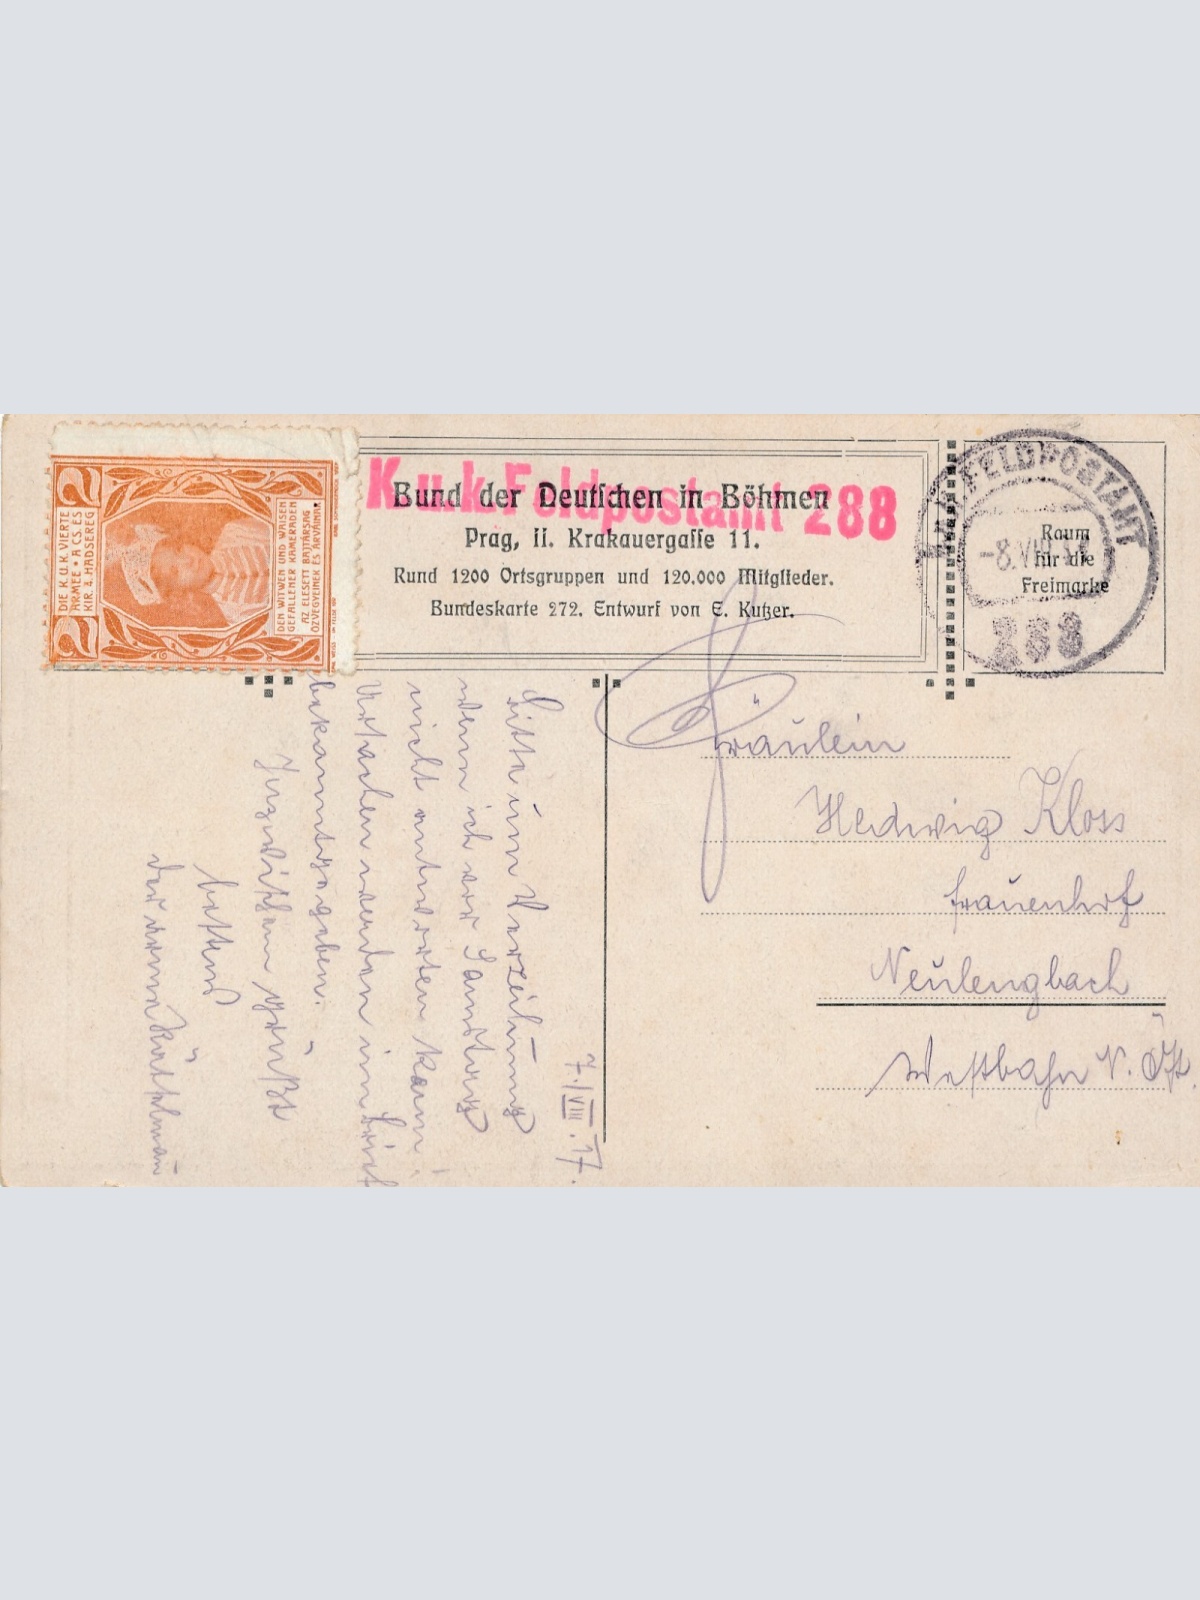 2 2
DIE K.U.K. VIERTE
ARMEE • A CS. ÉS
KIR. 4. HADSEREG
DEN WITWEN UND WAISEN
GEFALLENER KAMERADEN
AZ ELESETT BAJTÁRSAG
ÖZVEGYEINEK ÉS ÁRVÁINAK
K.u.k. Feldpostamt 288
Bund der Deutschen in Böhmen
Prag, II. Krakauergasse 11.
Rund 1200 Ortsgruppen und 120.000 Mitglieder.
Bundeskarte 272. Entwurf von E. Kutzer.
FELDPOSTAMT
-8.VIII.17
288
Raum
für die
Freimarke
7./VIII.17.
Bitte um Verzeihung
wenn ich vor Samstag
nicht antworten kann!
Ursachen werden im Brief
bekanntgegeben.
Inzwischen grüßt
bestens
der arme
Fräulein
Hedwig Kloss
Frauenhof
Neulengbach
Westbahn N. Öst